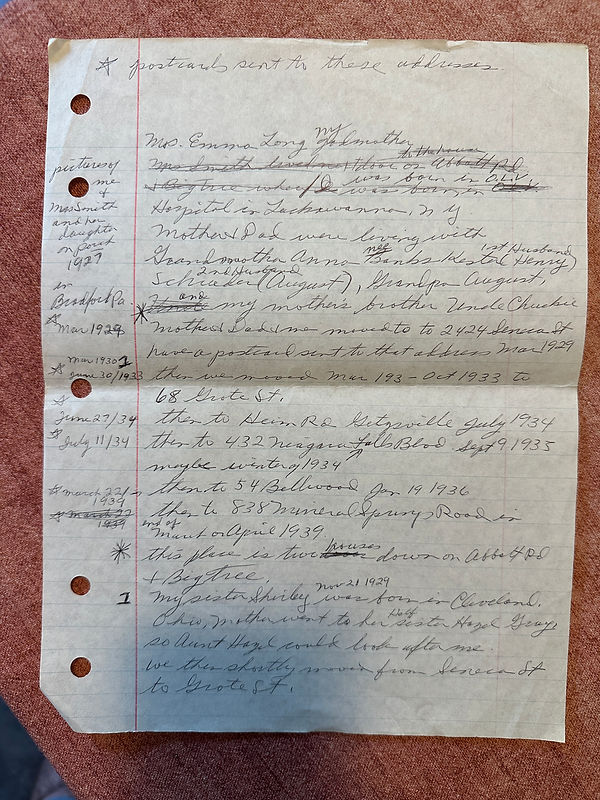 ☆ postcards sent to these addresses.
Mrs. Emma Long my Godmother
pictures of
me
+
Mrs Smith
and her
daughter
on porch
1927
in
Bradford Pa.
☆
Mar 1929
Mar 1930 1
☆ June 30/1933
☆
June 27/34
☆
July 11/34
☆ march 22/
1939
☆ march 22
1939
Mrs Smith lived next door on Abbott Rd
to the house
+ Bigtree where I was born in was born in O.L.V.
Hospital in Lackawanna, N Y
Mother & Dad were living with
Grandmother Anna nee Banks Kester (1st Husband Henry)
2nd Husband
Schrader (August), Grandpa August,
✳ and my mother's brother Uncle Chuckie
Mother & Dad & me moved to to 2424 Seneca St
have a postcard sent to that address Mar 1929
then we moved Mar 193 - Oct 1933 to
68 Grote St.
then to Heim Rd Getzville July 1934
then to 432 Niagara Falls Blvd Sept 9 1935
maybe winter of 1934 ↑
then to 54 Bellwood Jan 19 1936
then to 838 Mineral Springs Road in
end of
March or April 1939.
✳ this place is two houses down on Abbott Rd
+ Bigtree.
1 My sister Shirley was born Nov 21 1929 in Cleveland,
Ohio, Mother went to her half sister Hazel Grays
so Aunt Hazel could look after me.
we then shortly moved from Seneca St
to Grote St.